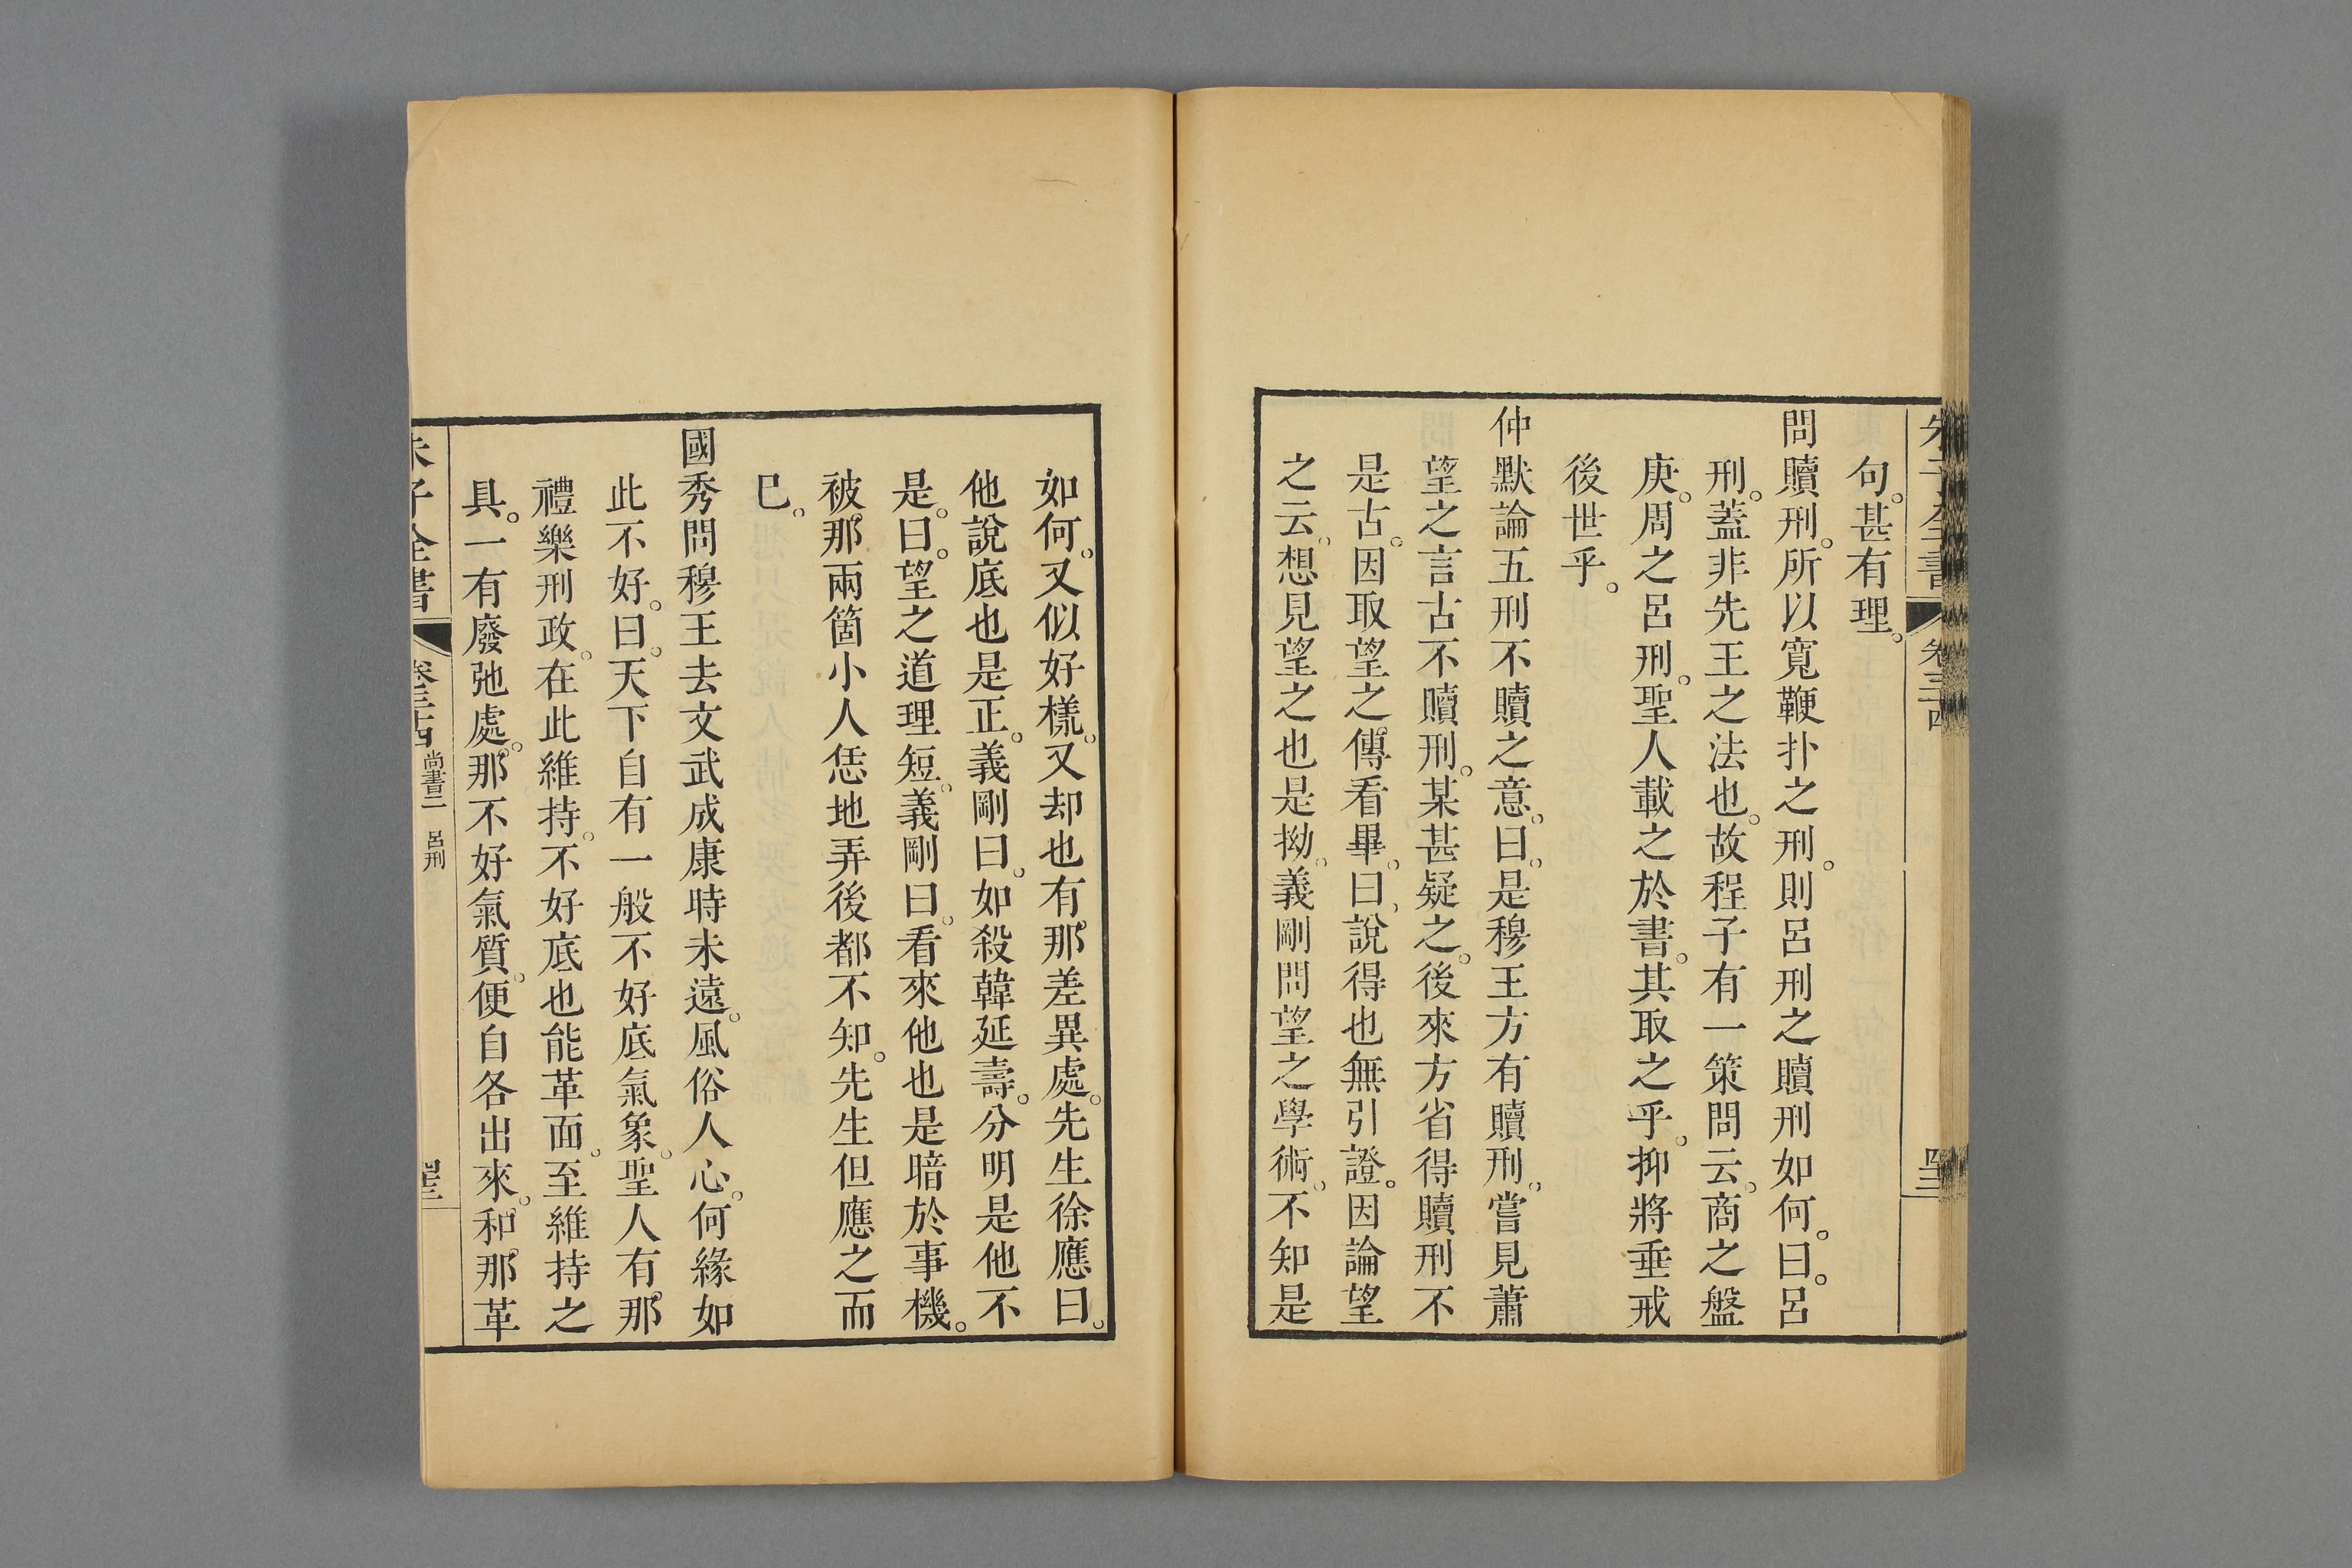 句。甚有理。
問贖刑。所以寬鞭扑之刑。則呂刑之贖刑如何。曰。呂
刑。蓋非先王之法也。故程子有一策問云。商之盤
庚。周之呂刑。聖人載之於書。其取之乎。抑將垂戒
後世乎。
仲默論五刑不贖之意。曰。是穆王方有贖刑。嘗見蕭
望之言古不贖刑。某甚疑之。後來方省得贖刑不
是古。因取望之傳看畢。曰。說得也無引證。因論望
之云。想見望之也是拗。義剛問望之學術。不知是
如何。又似好樣。又却也有那差異處。先生徐應曰。
他說底也是正。義剛曰。如殺韓延壽。分明是他不
是。曰。望之道理短。義剛曰。看來他也是暗於事機。
被那兩箇小人恁地弄後都不知。先生但應之而
已。
國秀問穆王去文武成康時未遠。風俗人心。何緣如
此不好。曰。天下自有一般不好底氣象。聖人有那
禮樂刑政。在此維持。不好底也能革面。至維持之
具。一有廢弛處。那不好氣質。便自各出來。和那革
朱子全書 卷三十四 尚書二 呂刑